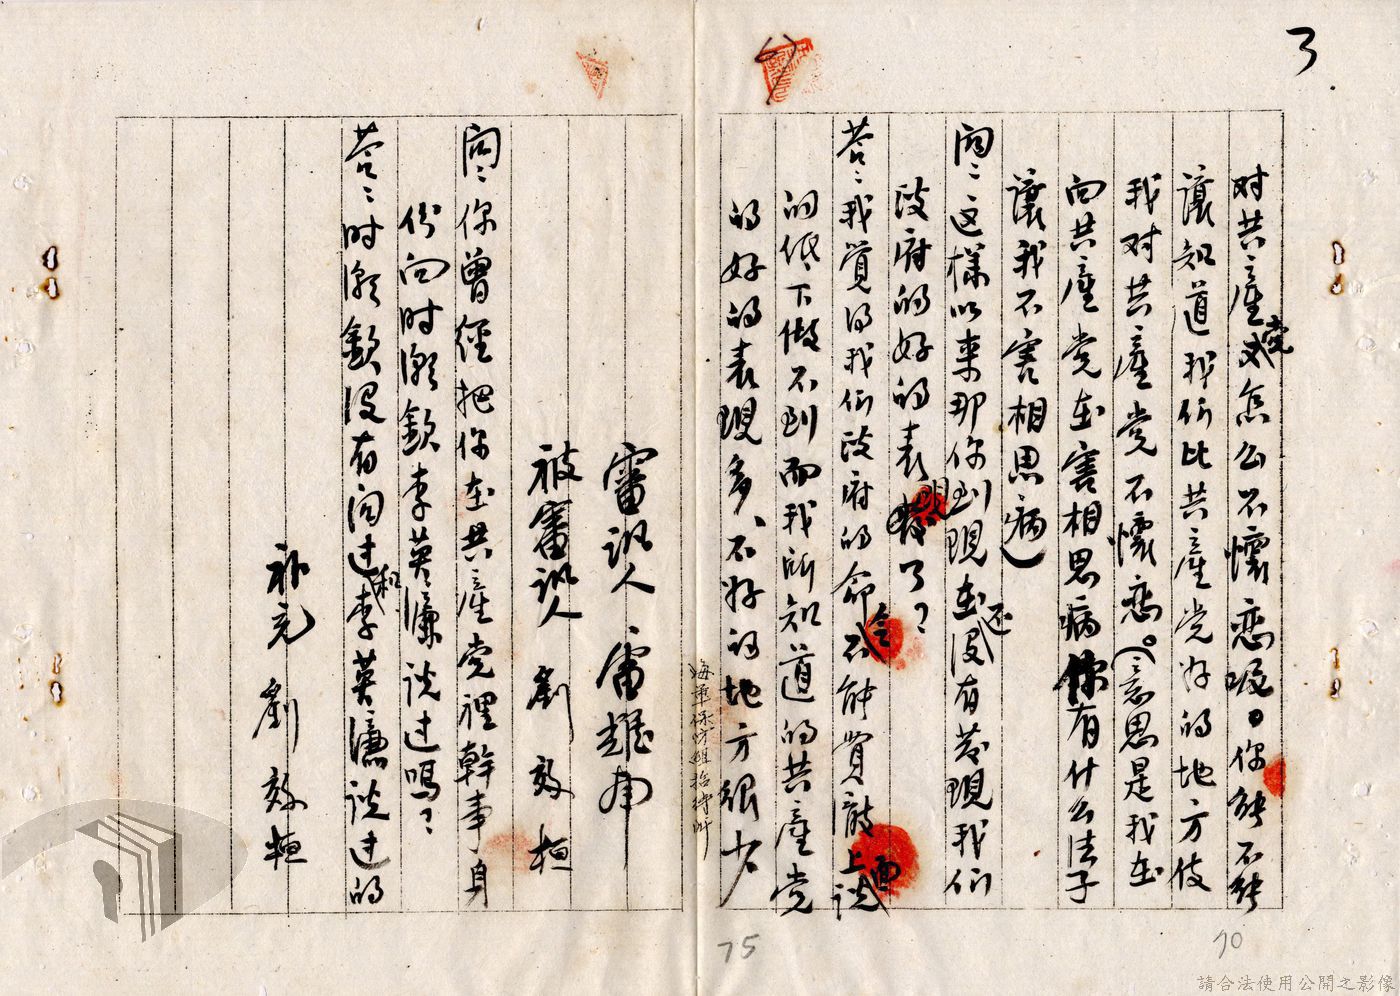 3
对共產党又怎么不懷恋呢。你能不能
讓知道我们比共產党好的地方使
我对共產党不懷恋。(意思是我在
向共產党在害相思病你有什么法子
讓我不害相思病)
問：这樣以來那你到現在还没有发現我们
政府的好的表現了？
答：我覺得我们政府的命令不能貫徹上面
的低下做不到而我所知道的共產党
的好的表現多、不好的地方很少
海軍保防組招待所
審訊人 雷雄
被審訊人 劉效桓
問：你曾經把你在共產党裡幹事身
份向时漱欽李英濂谈过嗎？
答：时漱欽没有向过和李英濂谈过的
补充 劉效桓
75
70
請合法使用公開之影像